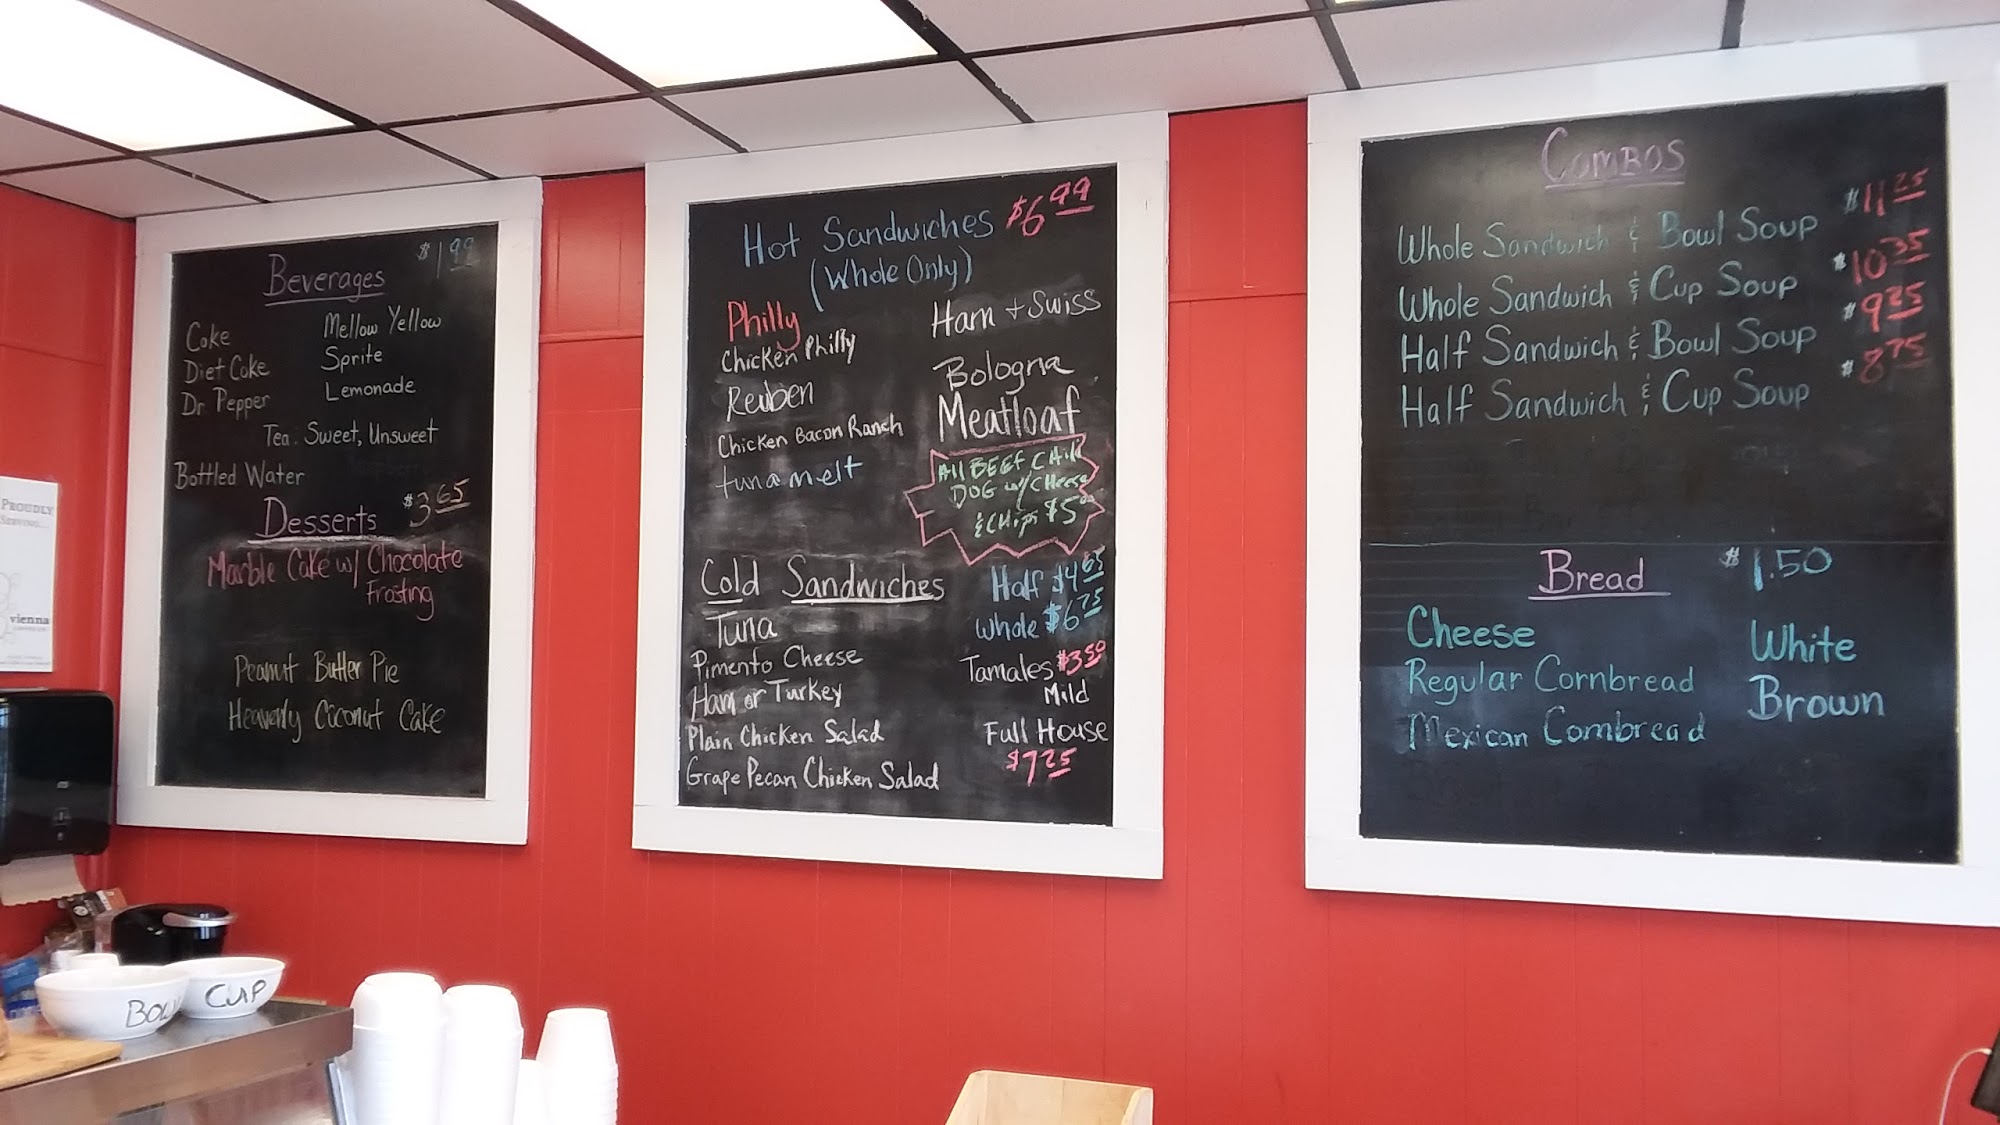 Beverages $1.99
Coke
Diet Coke
Dr Pepper
Mellow Yellow
Sprite
Lemonade
Tea. Sweet, Unsweet
Bottled Water
Desserts $3.65
Marble Cake w/ Chocolate
Frosting
Peanut Butter Pie
Heavenly Coconut Cake
Hot Sandwiches $6.99
(Whole Only)
Philly
Chicken Philly
Reuben
Chicken Bacon Ranch
tuna melt
Ham + Swiss
Bologna
Meatloaf
All BEEF CHili
DOG w/ CHeese
& CHips $5.00
Cold Sandwiches
Half $4.65
Whole $6.75
Tuna
Pimento Cheese
Ham or Turkey
Plain Chicken Salad
Grape Pecan Chicken Salad
Tamales $3.50
Mild
Full House
$7.25
Combos
Whole Sandwich & Bowl Soup $11.25
Whole Sandwich & Cup Soup $10.35
Half Sandwich & Bowl Soup $9.25
Half Sandwich & Cup Soup $8.75
Bread $1.50
Cheese
Regular Cornbread
Mexican Cornbread
White
Brown
PROUDLY
SERVING...
vienna
BOW
CUP